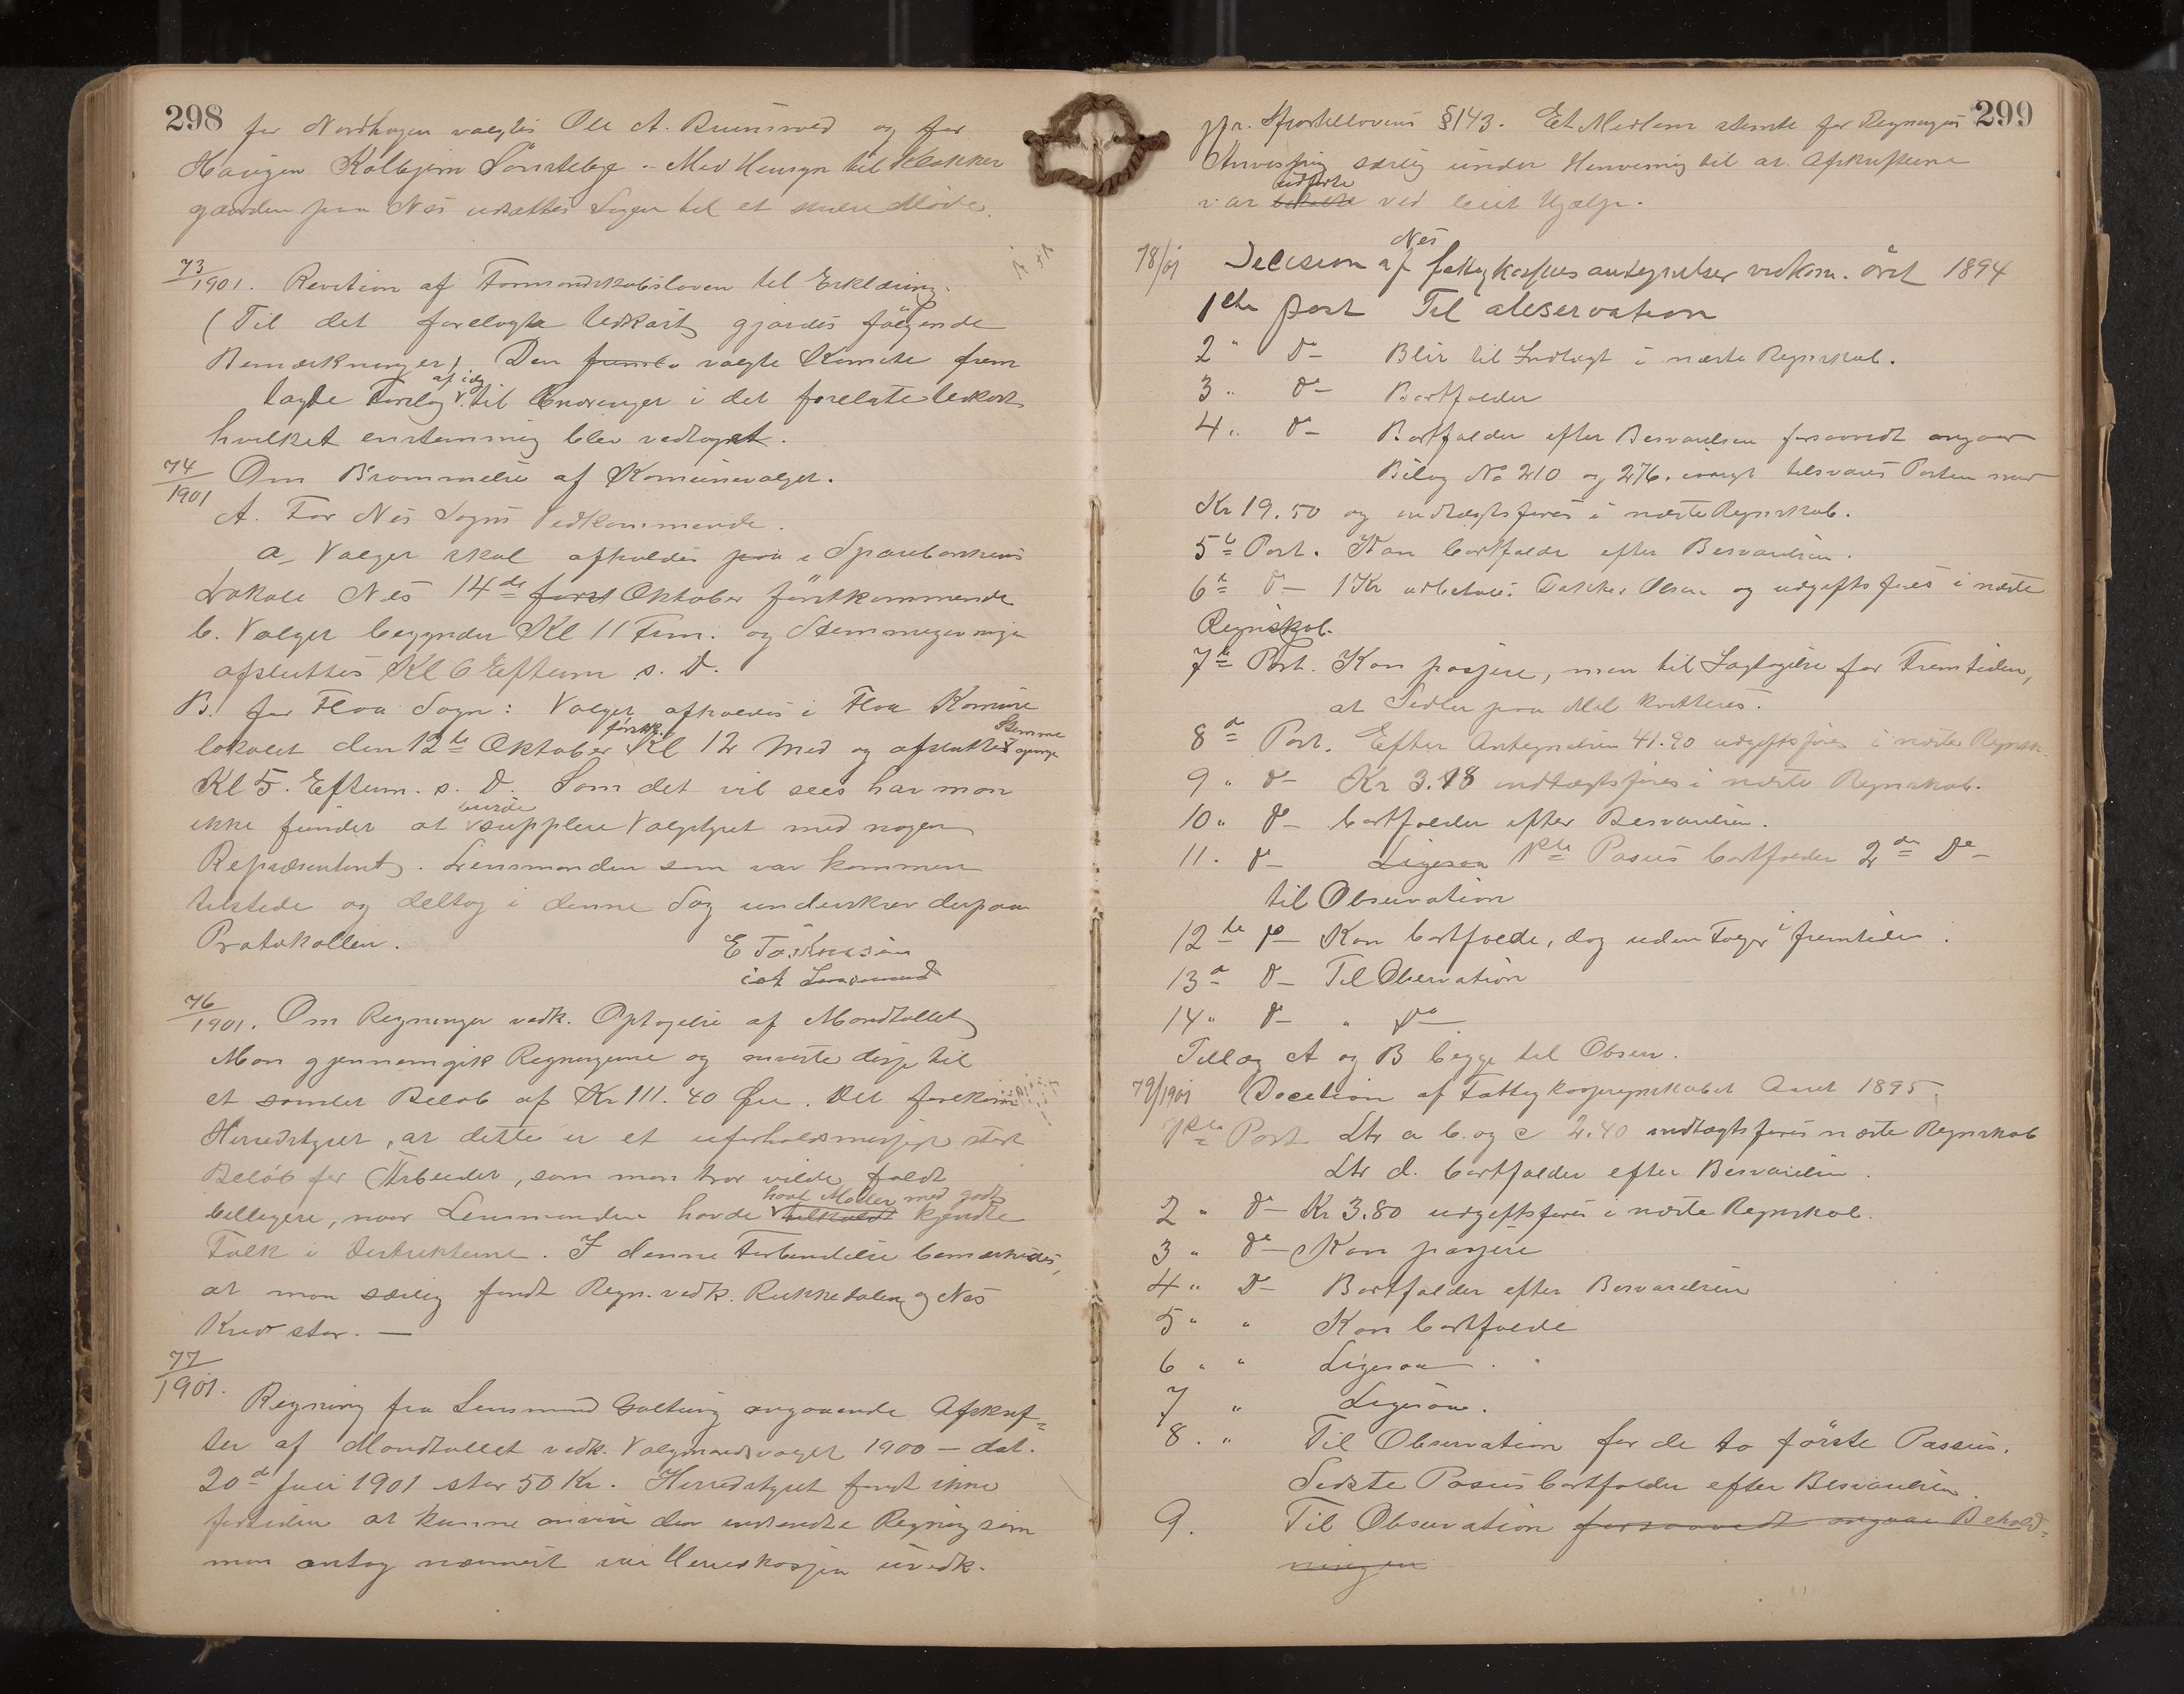 298
for Nordhagen valgtes Ole A. Brunsvold og for
Haugen Kolbjørn Sønsteby. - Med Hensyn til Klokker
gaarden paa Nes udsættes Sagen til et senere Møde.
73/1901. Revition af Formandskabsloven til Erklæring.
(Til det forelagte Udkast gjordes følgende
Bemærkninger) Den valgte Komite frem
lagde Forslag til Endringer i det forelagte Udkast
hvilket enstemmig blev vedtaget.
74/1901 Om Berammelse af Komunevalget.
A. For Nes Sogns Vedkommende.
a, Valget skal afholdes paa i Sparebankens
Lokale Nes 14de først Oktober førstkommende
b. Valget begynder Kl 11 Frm. og Stemmegivningen
afsluttes Kl 6 Efterm s. D.
B. for Flaa Sogn: Valget afholdes i Flaa Komune
lokalet den 12te Oktober førstk. Kl 12 Med og afsluttes Stemme
Kl 5. Efterm. s. D. Som det vil sees har man
ikke fundet at burde supplere Valgstyret med nogen
Repræsentant. Lensmanden som var kommen
tilstede og deltog i denne Sag underskrev derpaa
Protokollen.
E
76/1901. Om Regninger vedk. Optagelse af Mandtallet
Man gjennemgik Regningerne og anviste disse til
et samlet Beløb af Kr 111.40 Øre. Det forekom
Herredstyret, at dette er et uforholdsmessigt stort
Beløb for Arbeidet, som man tror vilde faldt
billigere, naar Lensmanden havde tilkaldt havt Møder med godt kjendte
Folk i Distrikterne. I denne Forbindelse bemærkedes,
at man særlig fandt Regn. vedk. Rukkedalen og Nes
Kreds stor. —
77/1901.
Regning fra Lensmand Galtung angaaende Afskrif=
ter af Mandtallet vedk. Valgmandsvalget 1900 — dat.
20de Juli 1901 stor 50 Kr. Herredstyret fandt ikke
fortiden at kunne anvise den indsendte Regning som
man antog nærmest var Herredskassen uvedk.
299
jfr. Sportellovens §143. Et Medlem stemte for Regningens
Anvisning særlig under Henvisning til at Afskrifterne
var udførte ved leiet Hjælp.
78/01 Decision af Nes fattigkasses antegnelser vedkom. året 1894
1ste post Til observation
2 " D— Blir til Indtægt i næste Regnskab.
3 " D— Bortfalder
4 " D— Bortfalder efter Besvarelsen forsaavidt angaar
Bilag No 210 og 276. iøvrigt tilsvares Posten med
Kr 19.50 og indtægtsføres i næste Regnskab.
5te Post. Kan bortfalde efter Besvarelsen.
6te D— 1 Kr udbetales Olsen og udgiftsføres i næste
Regnskab.
7de Post. Kan passere, men til Iagttagelse for Fremtiden,
at Sedler paa Mel kvitteres.
8de Post. Efter Antegnelsen 41.90 udgiftsføres i næste Regnsk.
9 " D— Kr 3.18 indtægtsføres i næste Regnskab.
10 " D— bortfalder efter Besvarelsen.
11. D— Ligesaa 1ste Passus bortfalder 2den Do—
til Observation
12te D— Kan bortfalde, dog uden Følger i fremtiden.
13de D— Til Observation
14 " D— " Do
Tillæg A og B begge til Observ.
79/1901 Decition af Fattigkasseregnskabet Aaret 1895.
1ste Post Ltr a b. og c 2.40 indtægtsføres næste Regnskab
Ltr d. bortfalder efter Besvarelsen.
2 " D— Kr 3.80 udgiftsføres i næste Regnskab.
3 " D— Kan passere
4 " D— Bortfalder efter Besvarelsen
5 " " Kan bortfalde
6 " " Ligesaa.
7 " Ligesaa.
8. " Til Observation for de to første Passus.
Sidste Passus bortfalder efter Besvarelsen.
9. Til Observation forsaavidt angaar Behold=
ningen